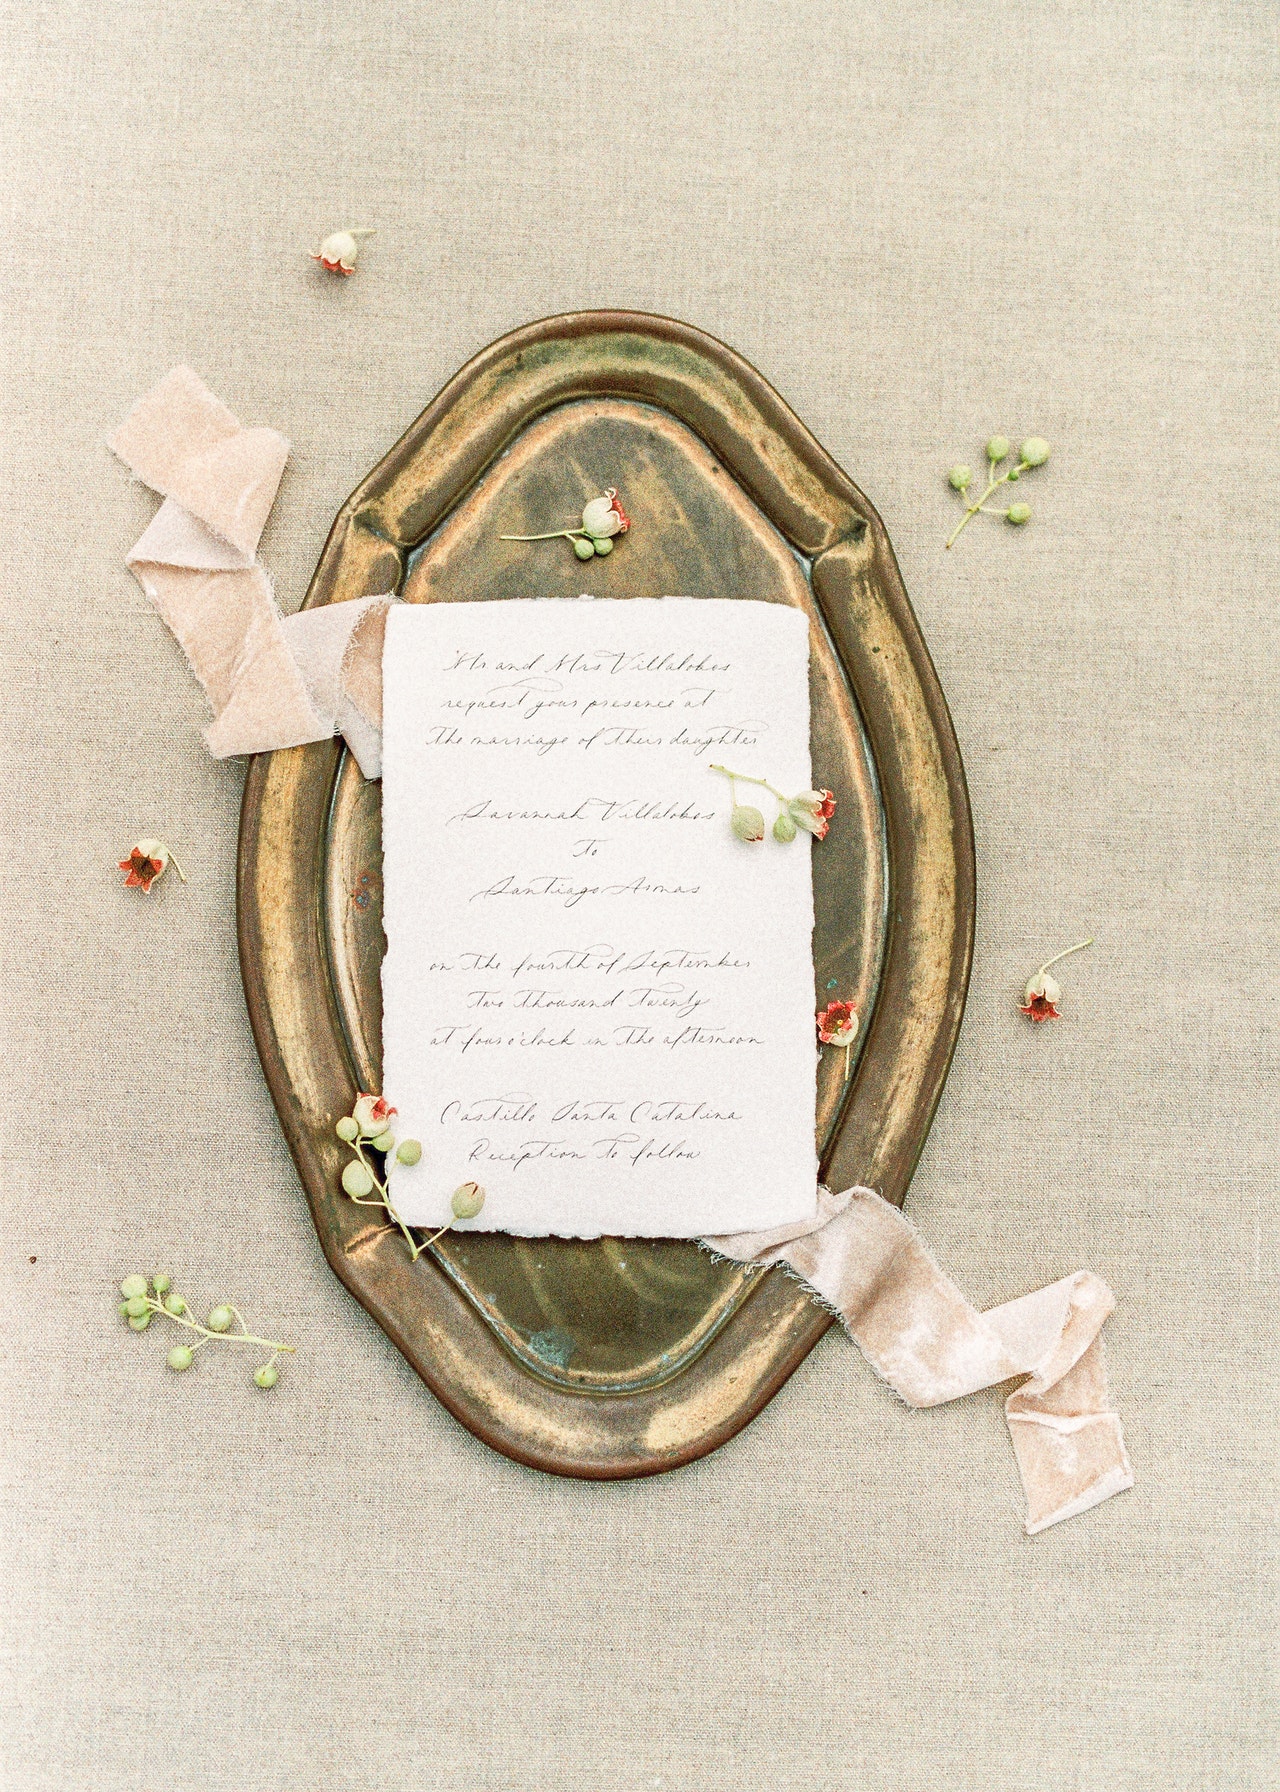 Mr and Mrs Villalobos
request your presence at
the marriage of their daughter
Savannah Villalobos
to
Santiago Armas
on the fourth of September
two thousand twenty
at four o'clock in the afternoon
Castillo Santa Catalina
Reception to follow